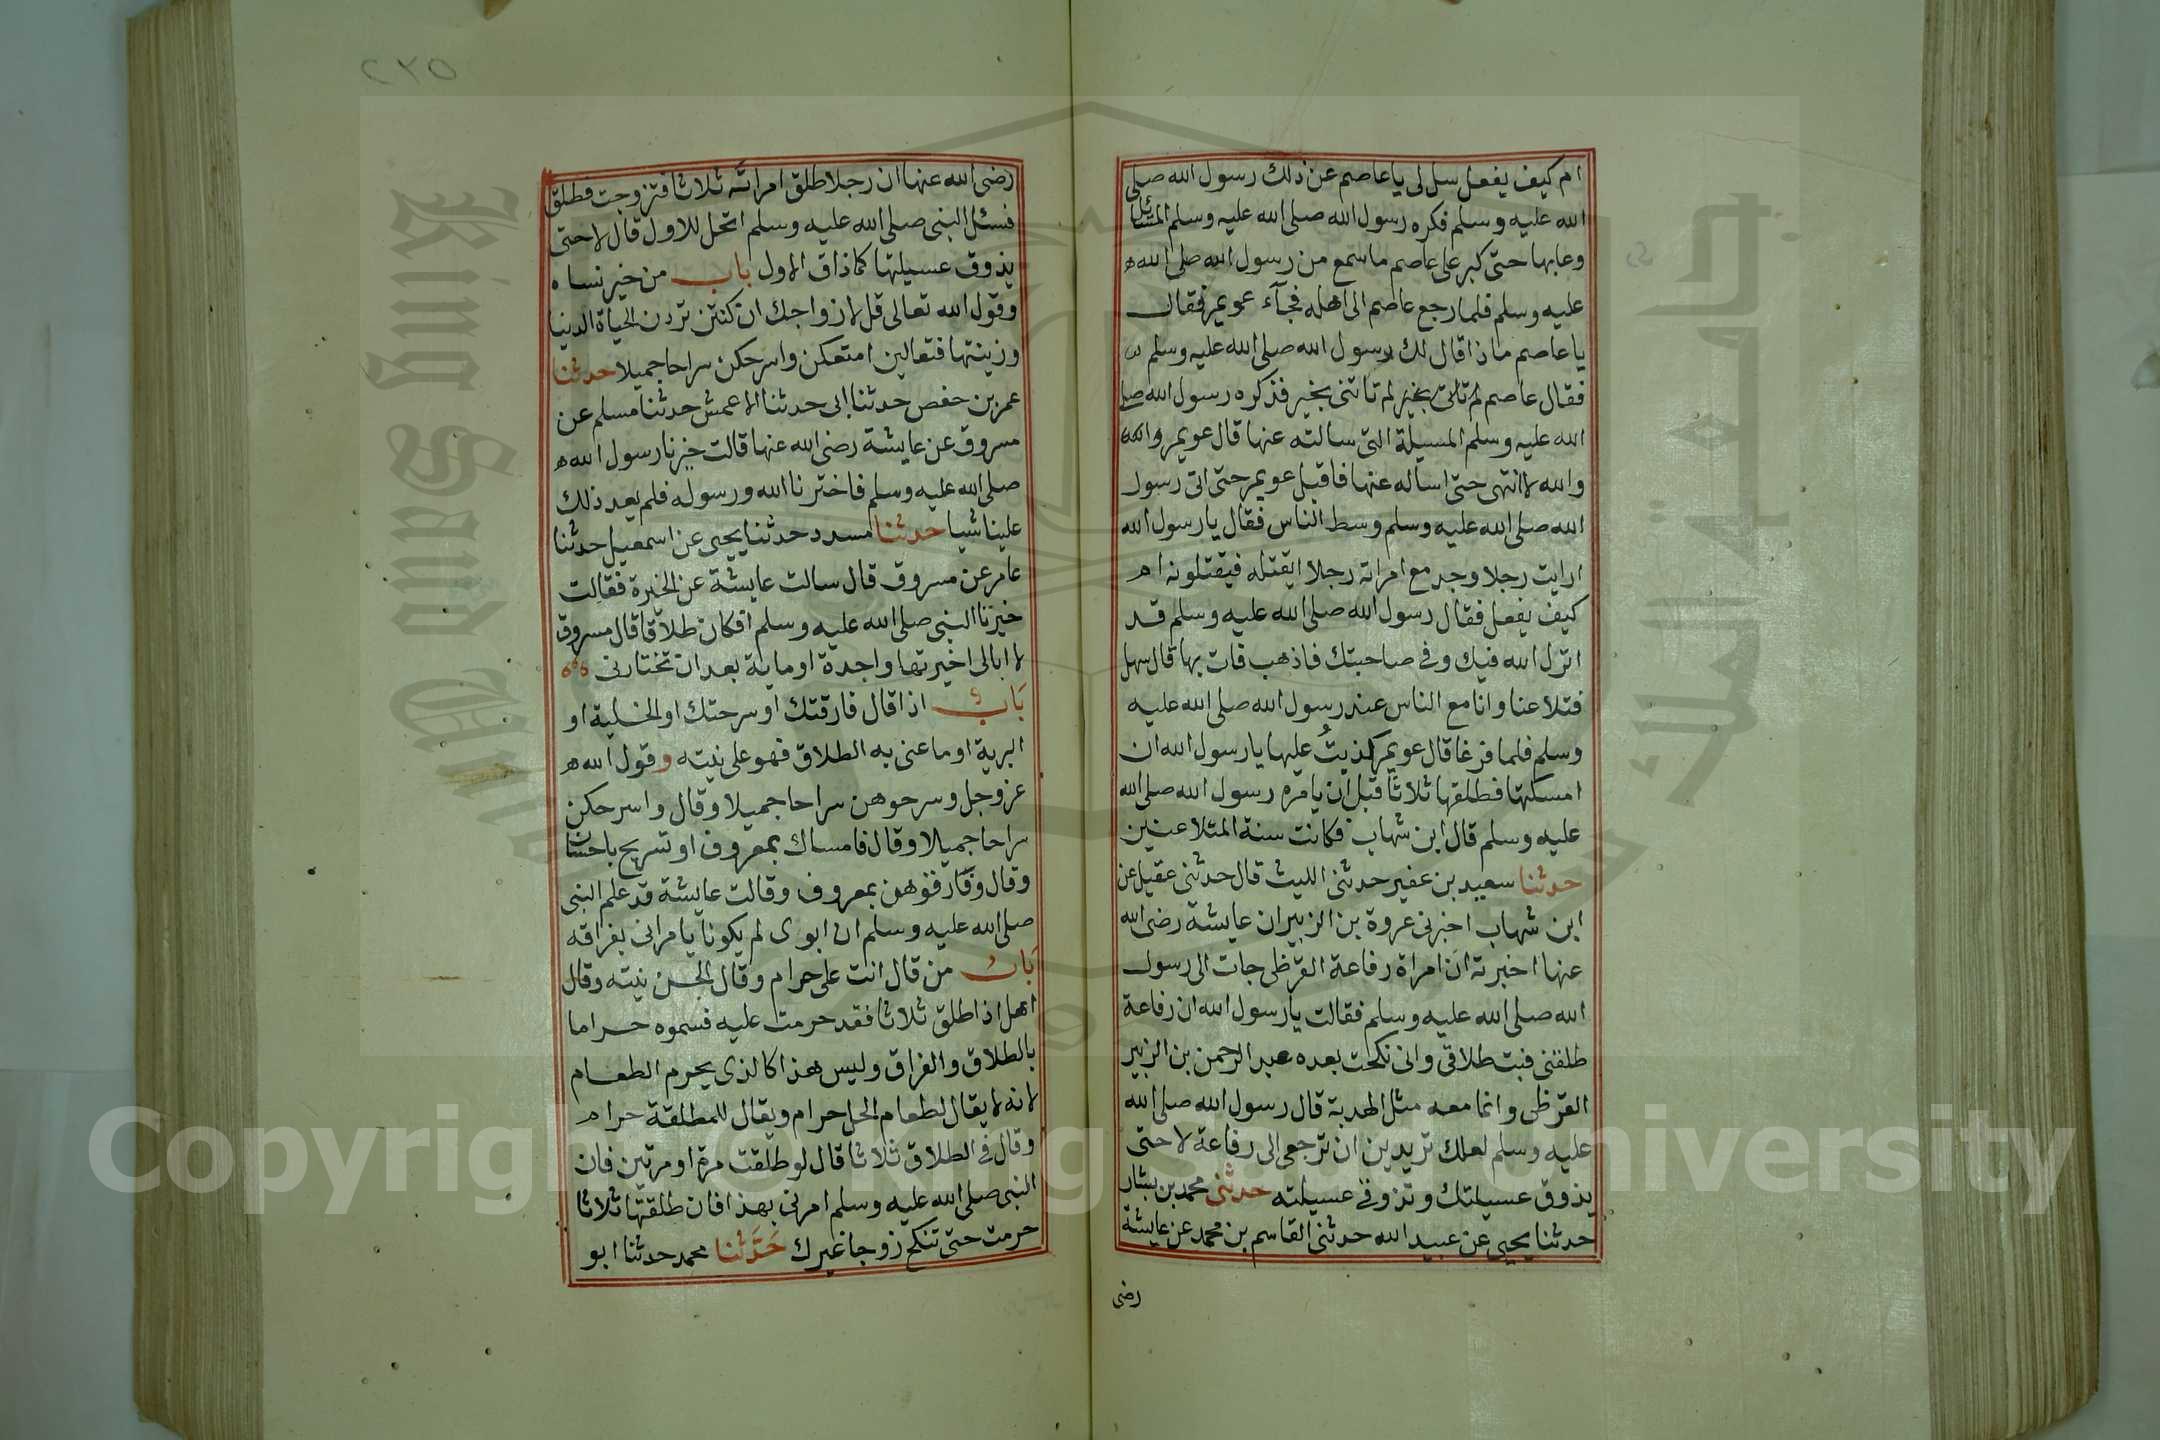 ام كيف يفعل سل لى يا عاصم عن ذلك رسول الله صلى
الله عليه وسلم فكره رسول الله صلى الله عليه وسلم المسائل
وعابها حتى كبر على عاصم ما سمع من رسول الله صلى الله
عليه وسلم فلما رجع عاصم الى اهله فجآء عويمر فقال
يا عاصم ماذا قال لك رسول الله صلى الله عليه وسلم
فقال عاصم لم تاتنى بخير فذكره رسول الله صلى
الله عليه وسلم المسيلة التى سالته عنها قال عويمر والله
والله لا انتهى حتى اساله عنها فاقبل عويمر حتى اتى رسول
الله صلى الله عليه وسلم وسط الناس فقال يا رسول الله
ارايت رجلا وجد مع امراته رجلا ايقتله فيقتلونه ام
كيف يفعل فقال رسول الله صلى الله عليه وسلم قد
انزل الله فيك وفى صاحبتك فاذهب فات بها قال سهل
فتلاعنا وانا مع الناس عند رسول الله صلى الله عليه
وسلم فلما فرغا قال عويمر كذبتُ عليها يا رسول الله ان
امسكتها فطلقها ثلاثا قبل ان يامره رسول الله صلى الله
عليه وسلم قال ابن شهاب فكانت سنة المتلاعنين
حدثنا سعيد بن عفير حدثنى الليث قال حدثنى عقيل عن
ابن شهاب اخبرنى عروة بن الزبير ان عايشة رضى الله
عنها اخبرته ان امراة رفاعة القرظى جات الى رسول
الله صلى الله عليه وسلم فقالت يا رسول الله ان رفاعة
طلقنى فبت طلاقى وانى نكحت بعده عبد الرحمن بن الزبير
القرظى وانما معه مثل الهدبة قال رسول الله صلى الله
عليه وسلم لعلك تريدين ان ترجعى الى رفاعة لا حتى
يذوق عسيلتك وتذوقى عسيلته حدثنى محمد بن بشار
حدثنا يحيى عن عبيد الله حدثنى القاسم بن محمد عن عايشة
رضى
٢٣٥
رضى الله عنها ان رجلا طلق امراته ثلاثا فتزوجت فطلق
فسئل النبى صلى الله عليه وسلم اتحل للاول قال لا حتى
يذوق عسيلتها كما ذاق الاول باب من خير نساه
وقول الله تعالى قل لازواجك ان كنتن تردن الحياة الدنيا
وزينتها فتعالين امتعكن واسرحكن سراحا جميلا حدثنا
عمر بن حفص حدثنا ابى حدثنا الاعمش حدثنا مسلم عن
مسروق عن عايشة رضى الله عنها قالت خيرنا رسول الله
صلى الله عليه وسلم فاخترنا الله ورسوله فلم يعد ذلك
علينا شيا حدثنا مسدد حدثنا يحيى عن اسمعيل حدثنا
عامر عن مسروق قال سالت عايشة عن الخيرة فقالت
خيرنا النبى صلى الله عليه وسلم افكان طلاقا قال مسروق
لا ابالى اخيرتها واحدة او ماية بعد ان تختارنى
باب اذا قال فارقتك او سرحتك او الخلية او
البرية او ما عنى به الطلاق فهو على نيته وقول الله
عز وجل وسرحوهن سراحا جميلا وقال واسرحكن
سراحا جميلا وقال فامساك بمعروف او تسريح باحسان
وقال وفارقوهن بمعروف وقالت عايشة قد علم النبى
صلى الله عليه وسلم ان ابوى لم يكونا يامرانى بفراقه
باب من قال انت على حرام وقال الحسن نيته وقال
اهل اذا طلق ثلاثا فقد حرمت عليه فسموه حراما
بالطلاق والفراق وليس هذا كالذى يحرم الطعام
لانه لا يقال لطعام الحل حرام ويقال للمطلقة حرام
وقال فى الطلاق ثلاثا قال لو طلقت مرة او مرتين فان
النبى صلى الله عليه وسلم امرنى بهذا فان طلقتها ثلاثا
حرمت حتى تنكح زوجا غيرك حدثنا محمد حدثنا ابو
King Saud University
Copyright © King Saud University